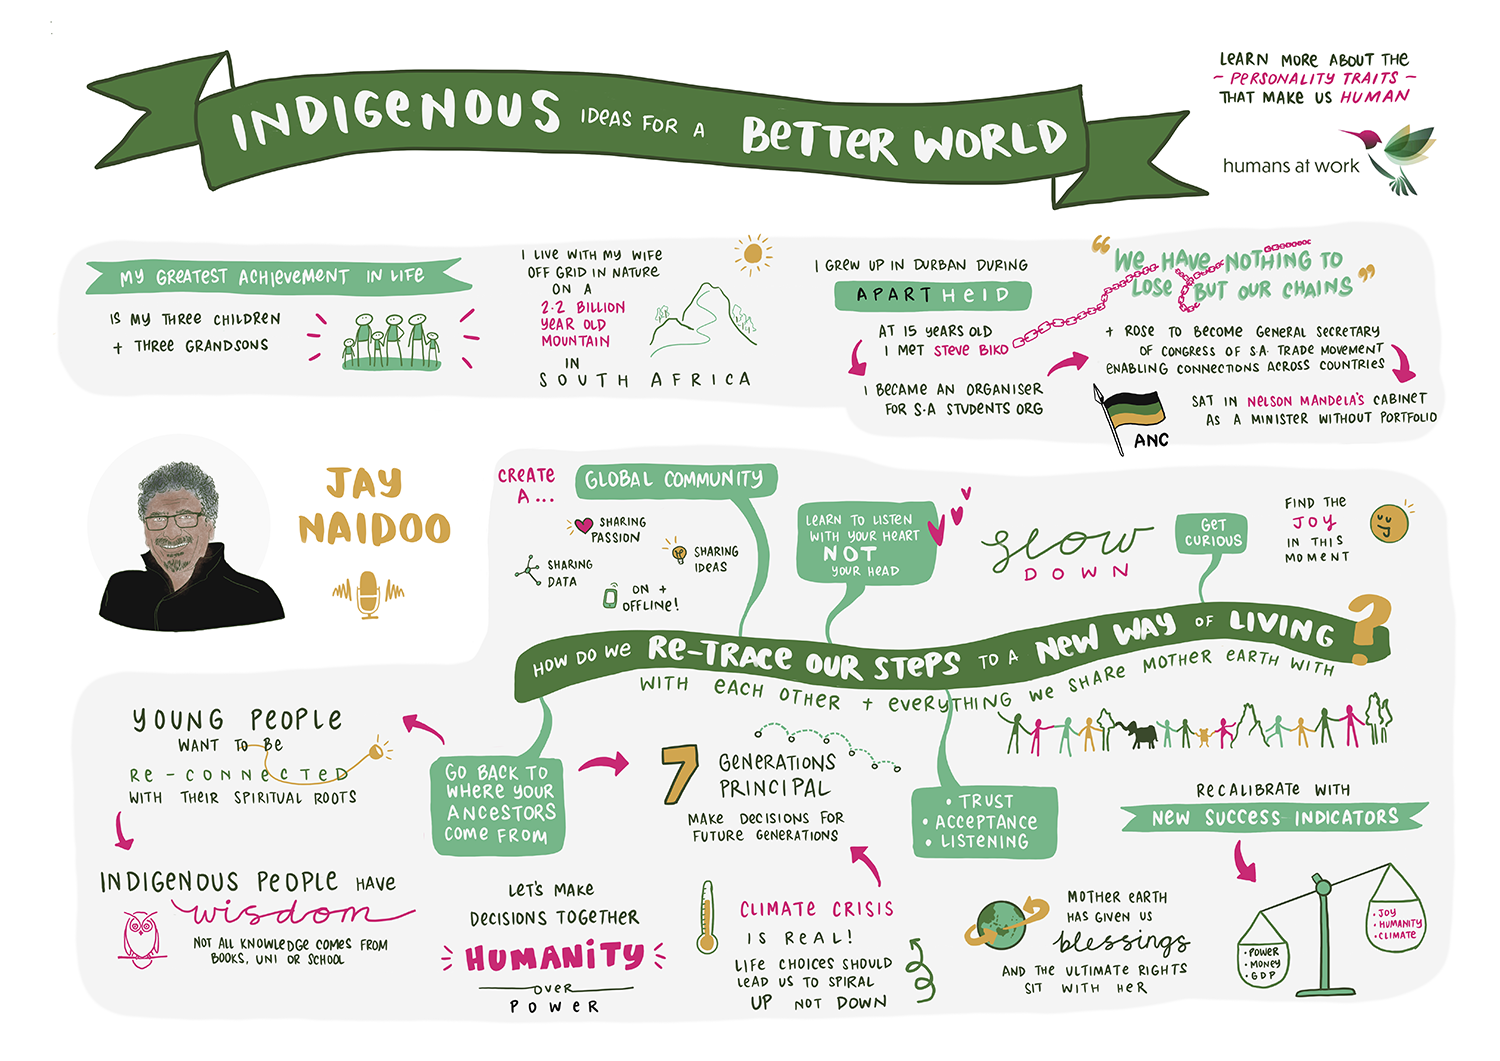 INDIGENOUS IDEAS FOR A BETTER WORLD
LEARN MORE ABOUT THE
~ PERSONALITY TRAITS ~
THAT MAKE US HUMAN
humans at work
MY GREATEST ACHIEVEMENT IN LIFE
IS MY THREE CHILDREN
+ THREE GRANDSONS
I LIVE WITH MY WIFE
OFF GRID IN NATURE
ON A
2.2 BILLION
YEAR OLD
MOUNTAIN
IN
SOUTH AFRICA
I GREW UP IN DURBAN DURING
APARTHEID
AT 15 YEARS OLD
I MET STEVE BIKO
I BECAME AN ORGANISER
FOR S.A STUDENTS ORG
"WE HAVE NOTHING TO
LOSE BUT OUR CHAINS"
+ ROSE TO BECOME GENERAL SECRETARY
OF CONGRESS OF S.A. TRADE MOVEMENT
ENABLING CONNECTIONS ACROSS COUNTRIES
SAT IN NELSON MANDELA'S CABINET
AS A MINISTER WITHOUT PORTFOLIO
ANC
JAY
NAIDOO
CREATE
A ...
GLOBAL COMMUNITY
SHARING
PASSION
SHARING
IDEAS
SHARING
DATA
ON +
OFFLINE!
LEARN TO LISTEN
WITH YOUR HEART
NOT
YOUR HEAD
SLOW
DOWN
GET
CURIOUS
FIND THE
JOY
IN THIS
MOMENT
HOW DO WE RE-TRACE OUR STEPS TO A NEW WAY OF LIVING?
WITH EACH OTHER + EVERYTHING WE SHARE MOTHER EARTH WITH
YOUNG PEOPLE
WANT TO BE
RE-CONNECTED
WITH THEIR SPIRITUAL ROOTS
INDIGENOUS PEOPLE HAVE
wisdom
NOT ALL KNOWLEDGE COMES FROM
BOOKS, UNI OR SCHOOL
GO BACK TO
WHERE YOUR
ANCESTORS
COME FROM
7 GENERATIONS
PRINCIPAL
MAKE DECISIONS FOR
FUTURE GENERATIONS
• TRUST
• ACCEPTANCE
• LISTENING
LET'S MAKE
DECISIONS TOGETHER
HUMANITY
OVER
POWER
CLIMATE CRISIS
IS REAL!
LIFE CHOICES SHOULD
LEAD US TO SPIRAL
UP NOT DOWN
MOTHER EARTH
HAS GIVEN US
blessings
AND THE ULTIMATE RIGHTS
SIT WITH HER
RECALIBRATE WITH
NEW SUCCESS INDICATORS
• POWER
• MONEY
• GDP
• JOY
• HUMANITY
• CLIMATE